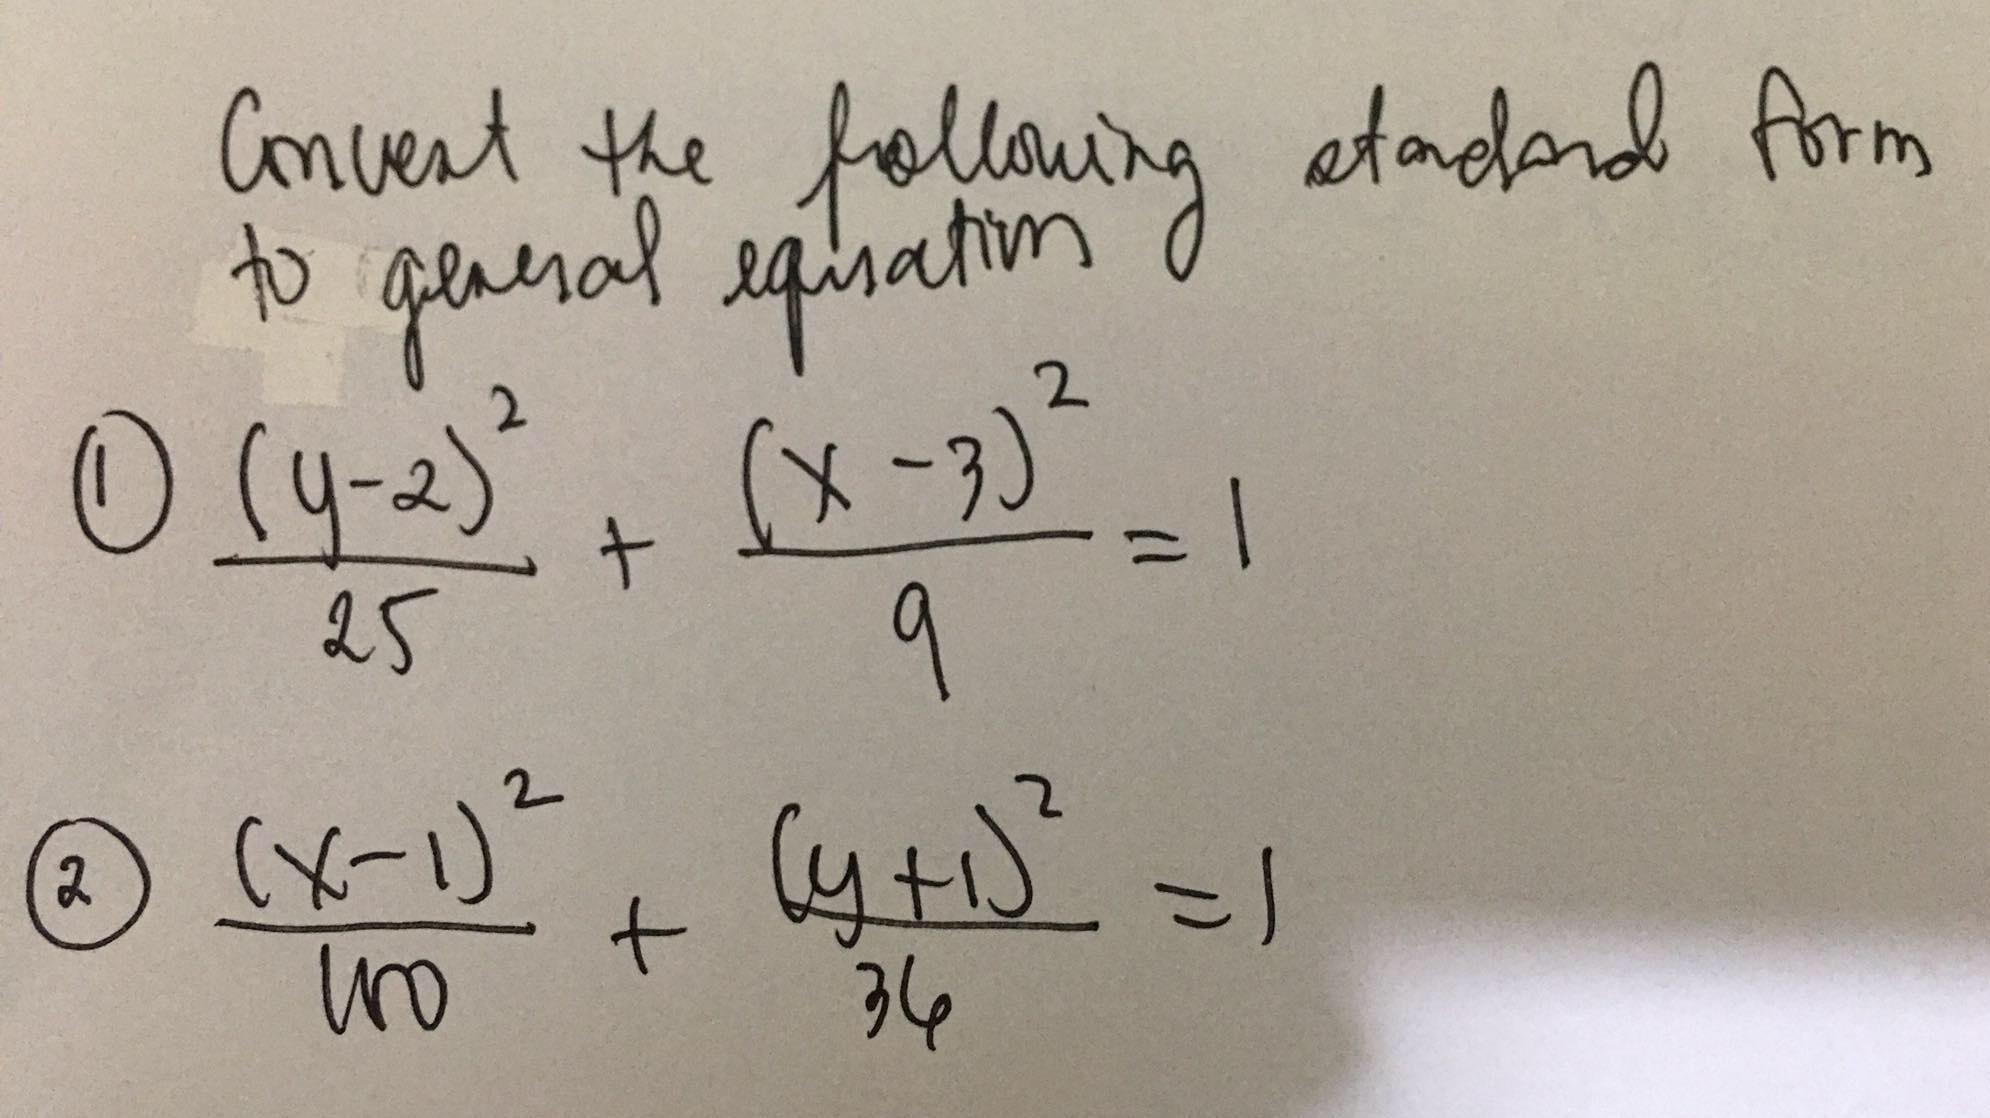 Convert the following standard form
to general equation
① (y-2)² / 25 + (x-3)² / 9 = 1
② (x-1)² / 100 + (y+1)² / 36 = 1